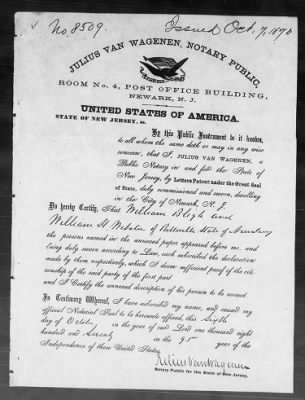 No. 8509.
Issued Oct. 7, 1870
JULIUS VAN WAGENEN, NOTARY PUBLIC,
ROOM No. 4, POST OFFICE BUILDING,
NEWARK, N. J.
UNITED STATES OF AMERICA.
STATE OF NEW JERSEY, ss.
By this Public Instrument be it known,
to all whom the same doth or may in any wise
concern, that I, JULIUS VAN WAGENEN, a
Public Notary in and for the State of
New Jersey, by Letters Patent under the Great Seal
of State, duly commissioned and sworn, dwelling
in the City of Newark, N. J.
Do hereby Certify, That William Bligh and
William H. Webster of Belleville State of New Jersey
the persons named in the annexed paper appeared before me, and
being duly sworn according to Law, each subscribed the declaration
made by them respectively, which I deem sufficient proof of the citi-
zenship of the said party of the first part
and I Certify the annexed description of his person to be correct
In Testimony Whereof, I have subscribed my name, and caused my
official Notarial Seal to be hereunto affixed, this Sixth
day of October in the year of our Lord one thousand eight
hundred and Seventy in the 95 year of the
Independence of these United States.
Julius Van Wagenen
Notary Public for the State of New Jersey.